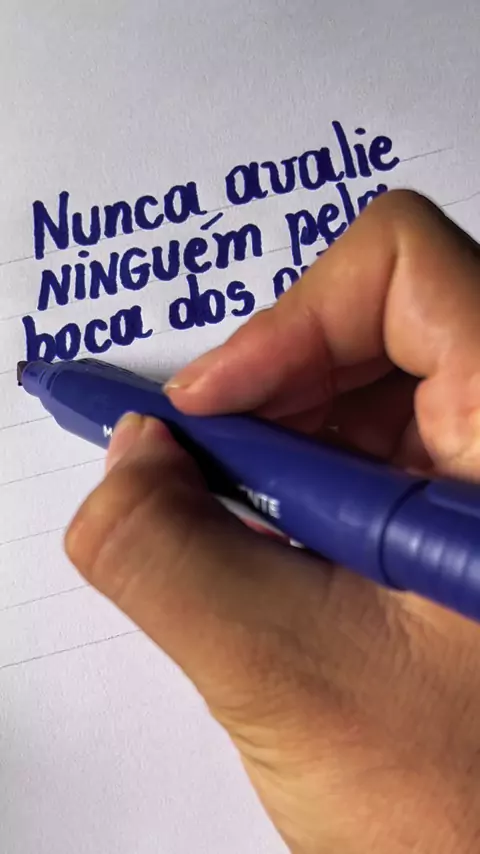 Nunca avalie
NINGUÉm pela
boca dos